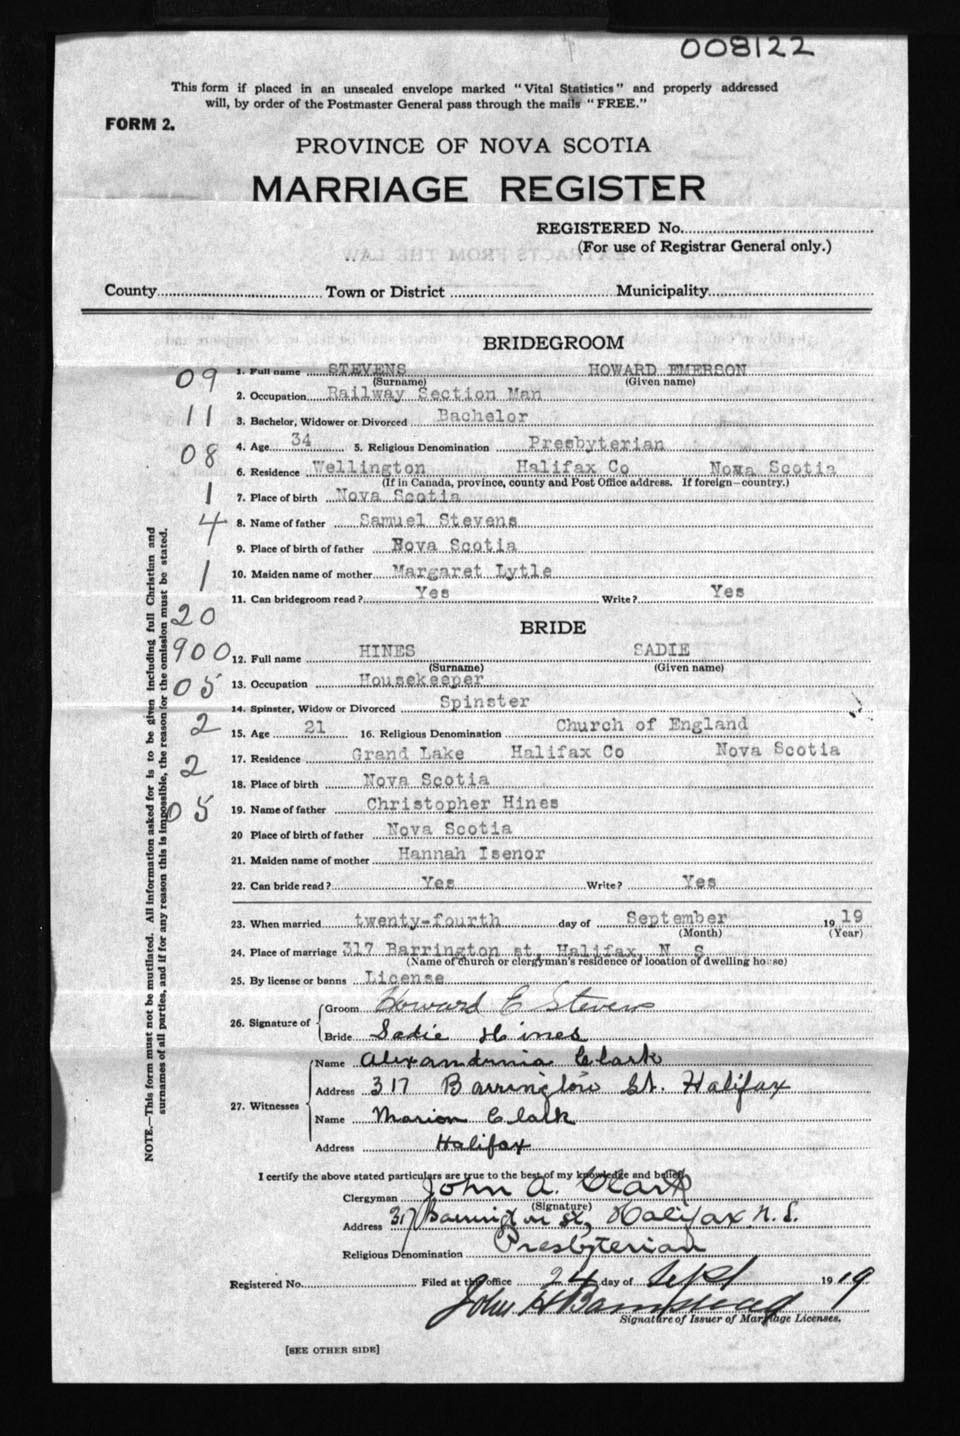 008122
This form if placed in an unsealed envelope marked "Vital Statistics" and properly addressed
will, by order of the Postmaster General pass through the mails "FREE."
FORM 2.
PROVINCE OF NOVA SCOTIA
MARRIAGE REGISTER
REGISTERED No.
(For use of Registrar General only.)
County Town or District Municipality
BRIDEGROOM
09 1. Full name STEVENS HOWARD EMERSON
(Surname) (Given name)
2. Occupation Railway Section Man
11 3. Bachelor, Widower or Divorced Bachelor
4. Age 34 5. Religious Denomination Presbyterian
08 6. Residence Wellington Halifax Co Nova Scotia
(If in Canada, province, county and Post Office address. If foreign—country.)
1 7. Place of birth Nova Scotia
4 8. Name of father Samuel Stevens
9. Place of birth of father Nova Scotia
1 10. Maiden name of mother Margaret Lytle
11. Can bridegroom read? Yes Write? Yes
20
BRIDE
900 12. Full name HINES SADIE
(Surname) (Given name)
05 13. Occupation Housekeeper
14. Spinster, Widow or Divorced Spinster
2 15. Age 21 16. Religious Denomination Church of England
17. Residence Grand Lake Halifax Co Nova Scotia
2 18. Place of birth Nova Scotia
05 19. Name of father Christopher Hines
20 Place of birth of father Nova Scotia
21. Maiden name of mother Hannah Isenor
22. Can bride read? Yes Write? Yes
23. When married twenty-fourth day of September 19 19
(Month) (Year)
24. Place of marriage 317 Barrington st, Halifax, N S
(Name of church or clergyman's residence or location of dwelling house)
25. By license or banns License
26. Signature of Groom Howard E Stevens
Bride Sadie Hines
27. Witnesses Name Alexandrina Clark
Address 317 Barrington St. Halifax
Name Marion Clark
Address Halifax
I certify the above stated particulars are true to the best of my knowledge and belief.
Clergyman John A. Clark
(Signature)
Address 317 Barrington St, Halifax N.S.
Religious Denomination Presbyterian
Registered No. Filed at the office 24 day of Sept 19 19
John H Barnstead
Signature of Issuer of Marriage Licenses.
[SEE OTHER SIDE]
NOTE.—This form must not be mutilated. All information asked for is to be given including full Christian and
surnames of all parties, and if for any reason this is impossible, the reason for the omission must be stated.